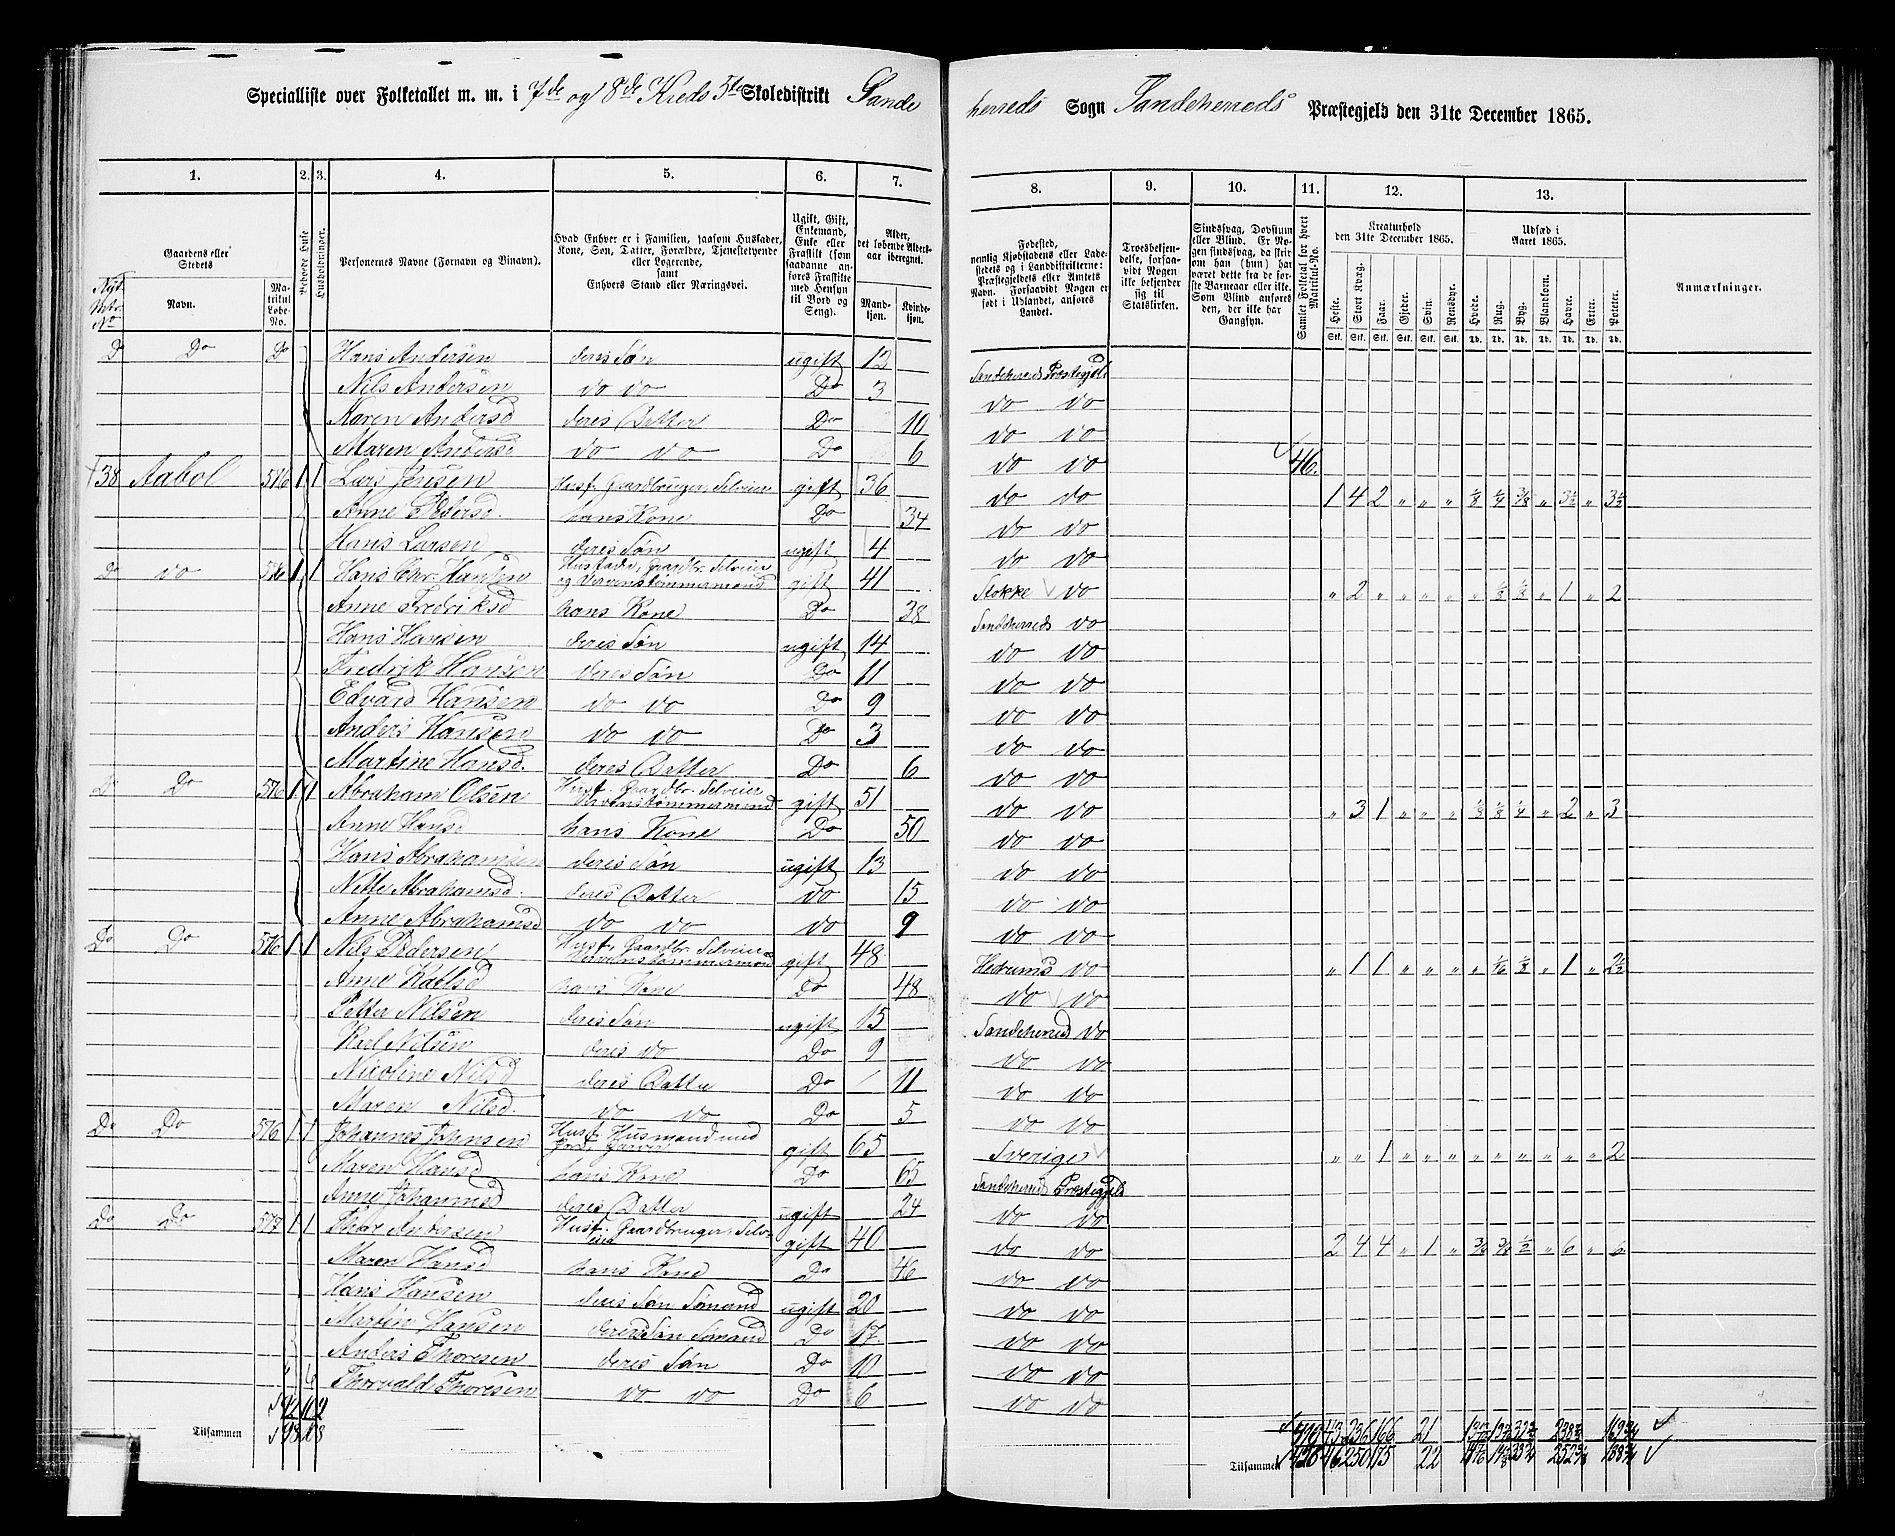 Specialliste over Folketallet m. m. i 7de og 8de Kreds 5te Skoledistrikt Sande
herreds Sogn Sandeherreds Præstegjeld den 31te December 1865.
1. 2. 3. 4. 5. 6. 7. 8. 9. 10. 11. 12. 13.
Gaardens eller Stedets
Navn.
Matrikul Løbe-No.
Beboede Huse
Husholdninger.
Personernes Navne (Fornavn og Binavn).
Hvad Enhver er i Familien, saasom Husfader, Kone, Søn, Datter, Forældre, Tjenestetyende eller Logerende, samt Enhvers Stand eller Næringsvei.
Ugift, Gift, Enkemand, Enke eller Fraskilt (som saadanne anføres Fraskilte med Hensyn til Bord og Seng).
Alder, det løbende Alders-aar iberegnet.
Mand-kjøn. Kvinde-kjøn.
Fødested, nemlig Kjøbstadens eller Ladestedets og i Landdistrikterne: Præstegjeldets eller Amtets Navn. Forsaavidt Nogen er født i Udlandet, anføres Landet.
Troesbekjendelse, forsaavidt Nogen ikke bekjender sig til Statskirken.
Sindssvag, Døvstum eller Blind. Er Nogen sindssvag, da skrives om han (hun) har været dette fra de første Barneaar eller ikke. Som Blind anføres den, der ikke har Gangsyn.
Samlet Folketal for hvert Matrikul-No.
Kreaturhold den 31te December 1865.
Heste. Stort Kvæg. Faar. Gjeder. Svin. Rensdyr.
Udsæd i Aaret 1865.
Hvede. Rug. Byg. Blandkorn. Havre. Erter. Poteter.
Anmærkninger.
Do Do Do Hans Andersen deres Søn ugift 12 Sandeherreds Præstegjeld
Nils Andersen do do Do 3 do do
Karen Andersd deres Datter Do 10 do do
Maren Andersd do do Do 6 do do 46.
138 Aabol 576 1 1 Lars Jensen Husf. Gaardbruger, Selveier gift 36 do do 1 4 2 " " " 1/8 1/4 3/8 " 3 1/2 " 3 1/2
Anne Pedersd. hans Kone Do 34 do do
Hans Larsen deres Søn ugift 4 do do
Do do 576 1 1 Hans Chr. Hansen gift 41 Stokke do " 2 " " " " " 1 " 2
Anne Fredriksd hans Kone Do 38 Sandeherreds do
Hans Hansen deres Søn ugift 14 do do
Fredrik Hansen deres Søn Do 11 do do
Edvard Hansen do do Do 9 do do
Anders Hansen do do Do 3 do do
Martine Hansd. deres Datter Do 6 do do
Do Do 576 1 1 Abraham Olsen Husf. Gaardbr. Selveier gift 51 do do " 3 1 " " " 1/8 1/8 1/4 " 2 " 3
Anne Hansd hans Kone Do 50 do do
Hans Abrahamsen deres Søn ugift 13 do do
Nette Abrahamsd. deres Datter do 15 do do
Anne Abrahamsd do do do 9 do do
Do Do 576 1 1 Nils Pedersen Husf. Gaardbr. Selveier gift 48 Hedrums do " 1 1 " " " " " 1 " 2 1/2
Anne hans Kone Do 48 do do
Petter Nilsen deres Søn ugift 15 Sandeherred do
Karl Nilsen deres do Do 9 do do
Nicoline Nilsd deres Datter Do 11 do do
Maren Nilsd. do do Do 5 do do
Do Do 576 1 1 Johannes Johnsen Husf. Husmand med Jord gift 65 Sverige " " 1 " " " " " " " " " 2
Maren Hansd hans Kone Do 65 Sandeherreds Præstegjeld
Anne Johannesd deres Datter ugift 24 do do
Do Do 577 1 1 Thor Andersen Husf. Gaardbruger, Selveier gift 40 do do 2 4 4 " 1 " 1/2 " 6 " 6
Maren Hansd hans Kone Do 46 do do
Hans Hansen deres Søn Sømand ugift 20 do do
Martin Hansen deres Søn Sømand Do 17 do do
Anders Thoresen deres Søn Do 10 do do
Thorvald Thoresen do do Do 6 do do
Tilsammen
Tilsammen